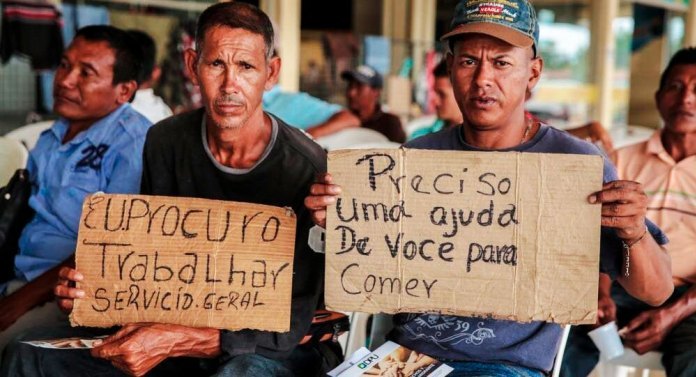 EU.PROCURO
TrabaLHar
SERVICIO.GERAL
Preciso
uma ajuda
De voce para
comer
28
DPU